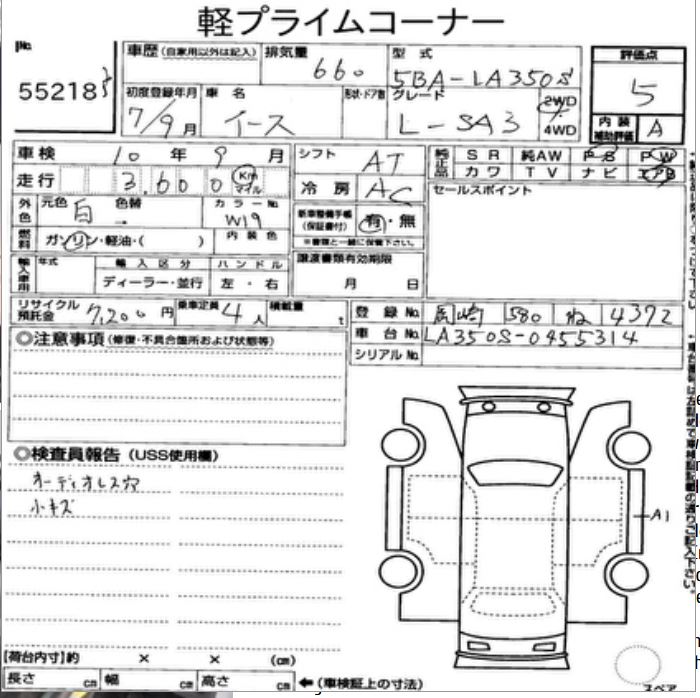 軽プライムコーナー
No.
55218
車歴（自家用以外は記入） 排気量 660 型式 5BA-LA350S
初度登録年月 7/9月 車名 イース 形状・ドア数 グレード L-SA3 2WD 4WD
評価点 5
内装補助評価 A
車検 10年9月 シフト AT
走行 3,600 Km マイル 冷房 AC
純正品 SR 純AW PS PW
カワ TV ナビ エアB
外色 元色 白 色替 → カラーNo. W19
燃料 ガソリン・軽油・( ) 内装色
新車整備手帳（保証書付） 有・無
※書類と一緒に保管下さい。
セールスポイント
輸入車用 年式 輸入区分 ディーラー・並行 ハンドル 左・右
譲渡書類有効期限 月 日
リサイクル預託金 7,200円 乗車定員 4人 積載量 t
登録No. 岡崎 580 ね 4372
車台No. LA350S-0455314
シリアルNo.
◎注意事項（修復・不具合箇所および状態等）
◎検査員報告（USS使用欄）
オーディオレス穴
小キズ
A1
【荷台内寸】約 × × (cm)
長さ cm 幅 cm 高さ cm ←（車検証上の寸法）
スペア